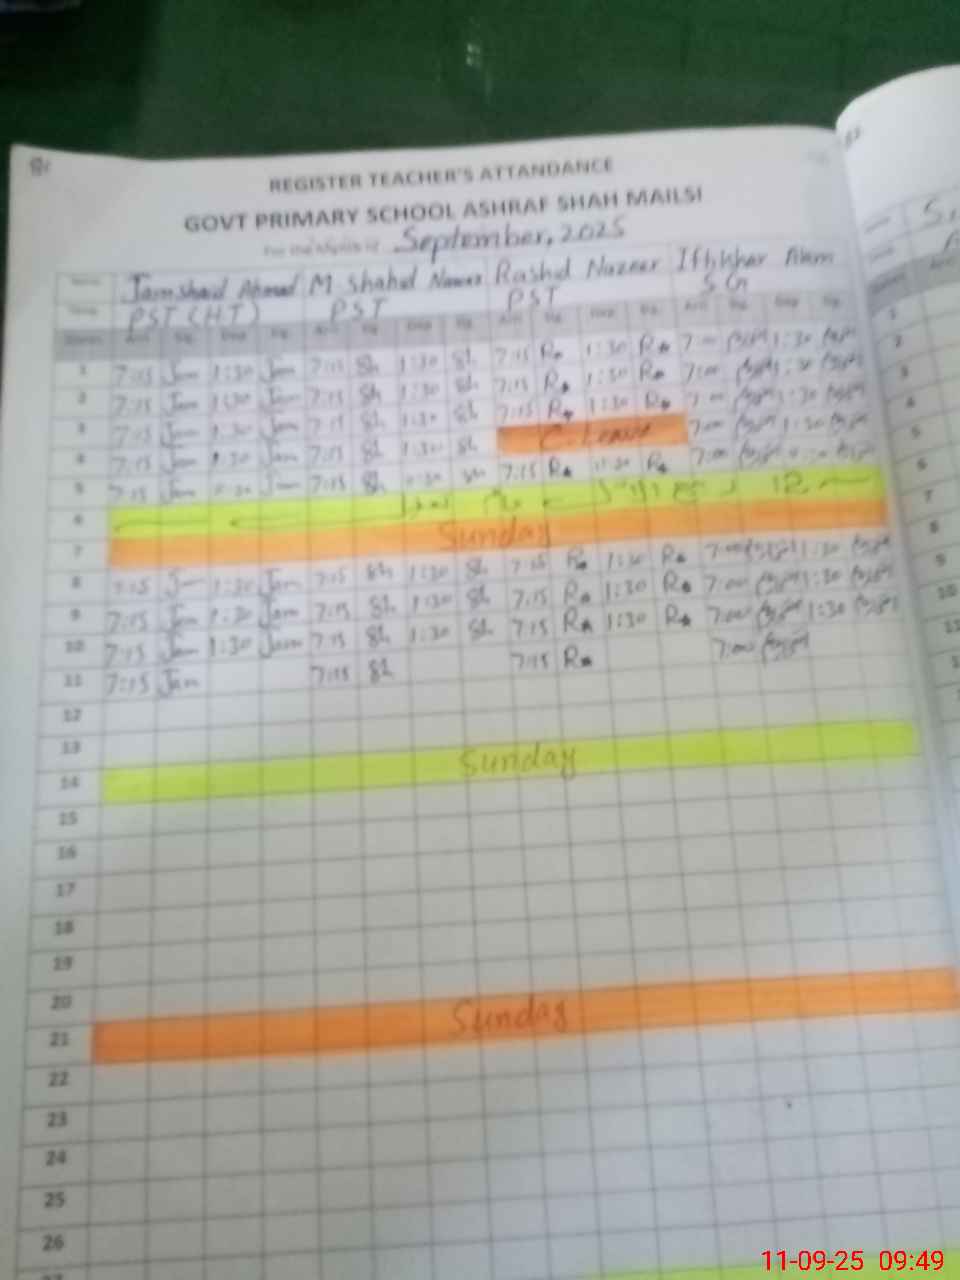 REGISTER TEACHER'S ATTANDANCE
GOVT PRIMARY SCHOOL ASHRAF SHAH MAILSI
For the Month of September, 2025
Jamshaid Ahmad M Shahid Nawaz Rashid Nazeer Iftikhar Alam
PST (HT) PST PST SG
Arr: Sig. Dep Sig. Arr: Sig. Dep Sig. Arr: Sig. Dep Sig. Arr: Sig. Dep Sig.
1 7:15 Jam 1:30 Jam 7:15 Sh 1:30 Sh 7:15 R. 1:30 R. 7:00 1:30
2 7:15 Jam 1:30 Jam 7:15 Sh 1:30 Sh 7:15 R. 1:30 R. 7:00 1:30
3 7:15 Jam 1:30 Jam 7:15 Sh 1:30 Sh 7:15 R. 1:30 R. 7:00 1:30
4 7:15 Jam 1:30 Jam 7:15 Sh 1:30 Sh C. Leave 7:00 1:30
5 7:15 Jam 11:30 Jam 7:15 Sh 11:30 Sh 7:15 R. 11:30 R. 7:00 11:30
6
7 Sunday
8 7:15 Jam 1:30 Jam 7:15 Sh 1:30 Sh 7:15 R. 1:30 R. 7:00 1:30
9 7:15 Jam 1:30 Jam 7:15 Sh 1:30 Sh 7:15 R. 1:30 R. 7:00 1:30
10 7:15 Jam 1:30 Jam 7:15 Sh 1:30 Sh 7:15 R. 1:30 R. 7:00 1:30
11 7:15 Jam 7:15 Sh 7:15 R. 7:00
12
13
14 Sunday
15
16
17
18
19
20
21 Sunday
22
23
24
25
26
27
1
2
3
4
5
6
7
8
9
10
11
11-09-25 09:49